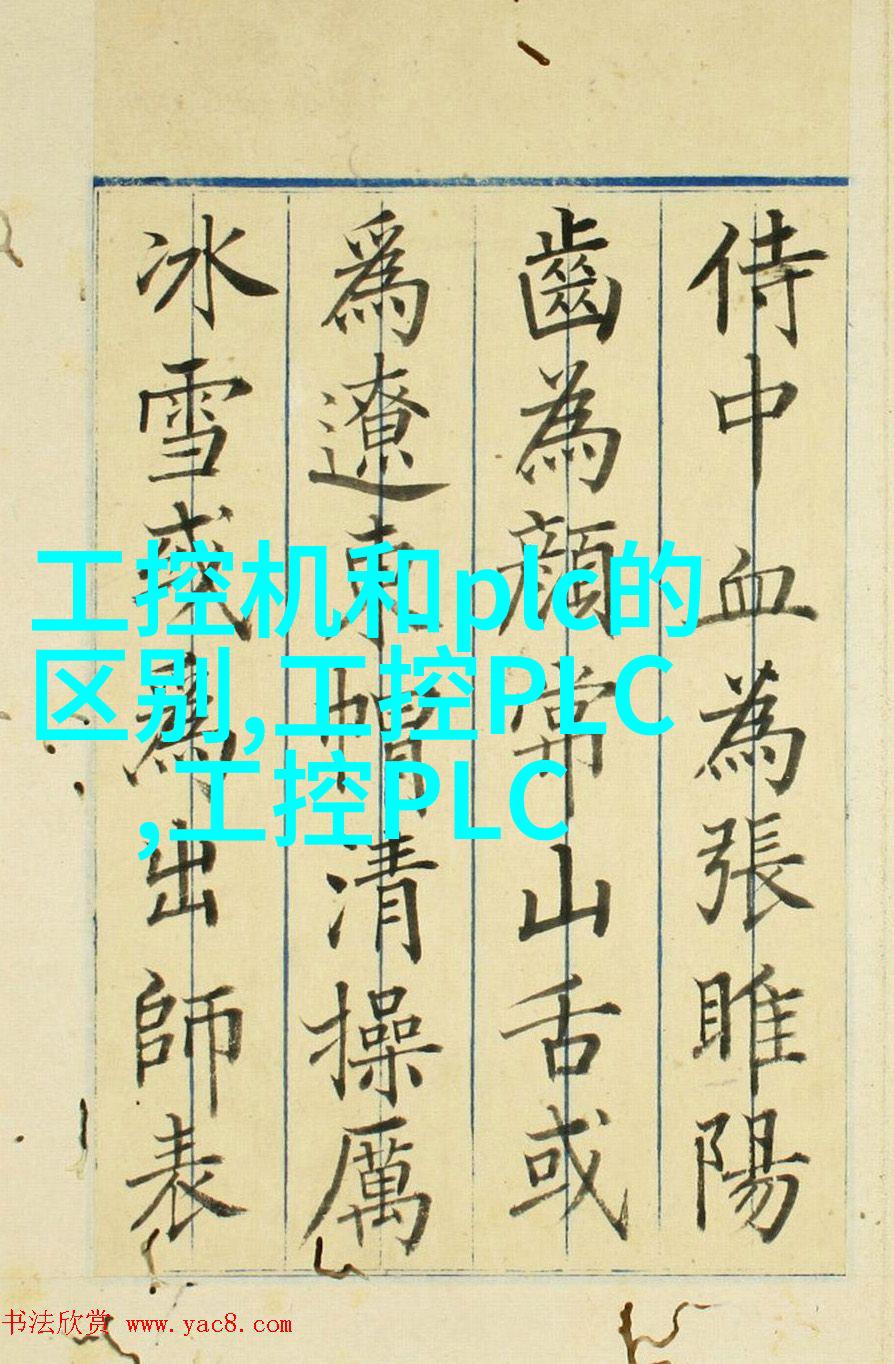 侍中血為張睢陽
齒為顔常山舌或
爲遼東帽清操厲
冰雪或為出師表
工控机和plc的
区别,工控PLC
,工控PLC
书法欣赏 www.yac8.com